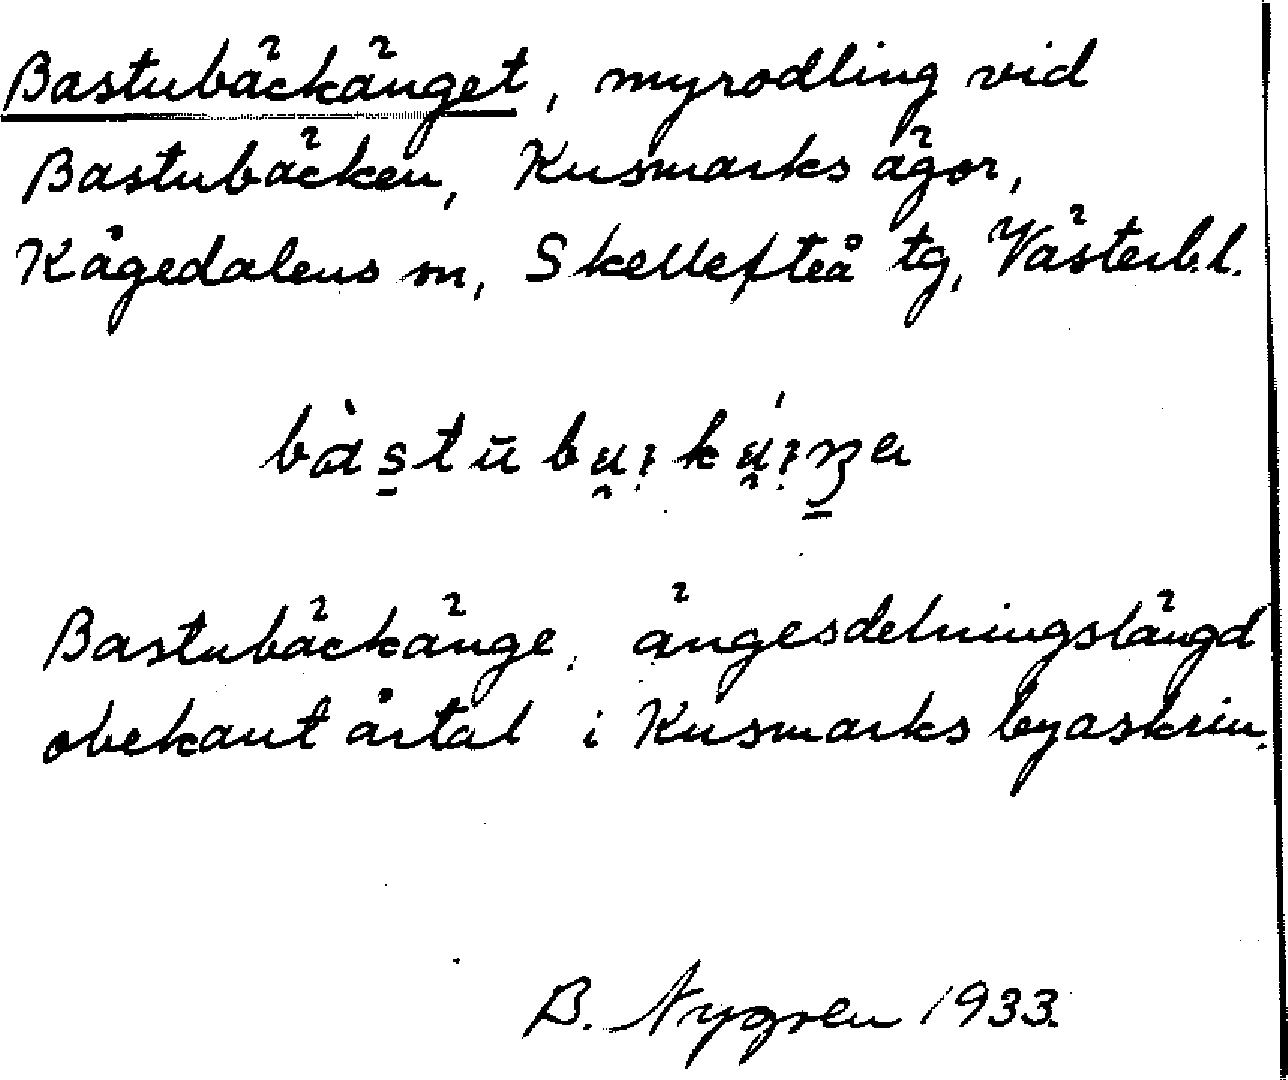 Bastubäckänget, myrodling vid
Bastubäcken, Kusmarks ägor,
Kågedalens sn, Skellefteå tg, Västerb.l.
Bastubäckänge, ängesdelningslängd
obekant årtal i Kusmarks byaskrin.
B. Nygren 1933.